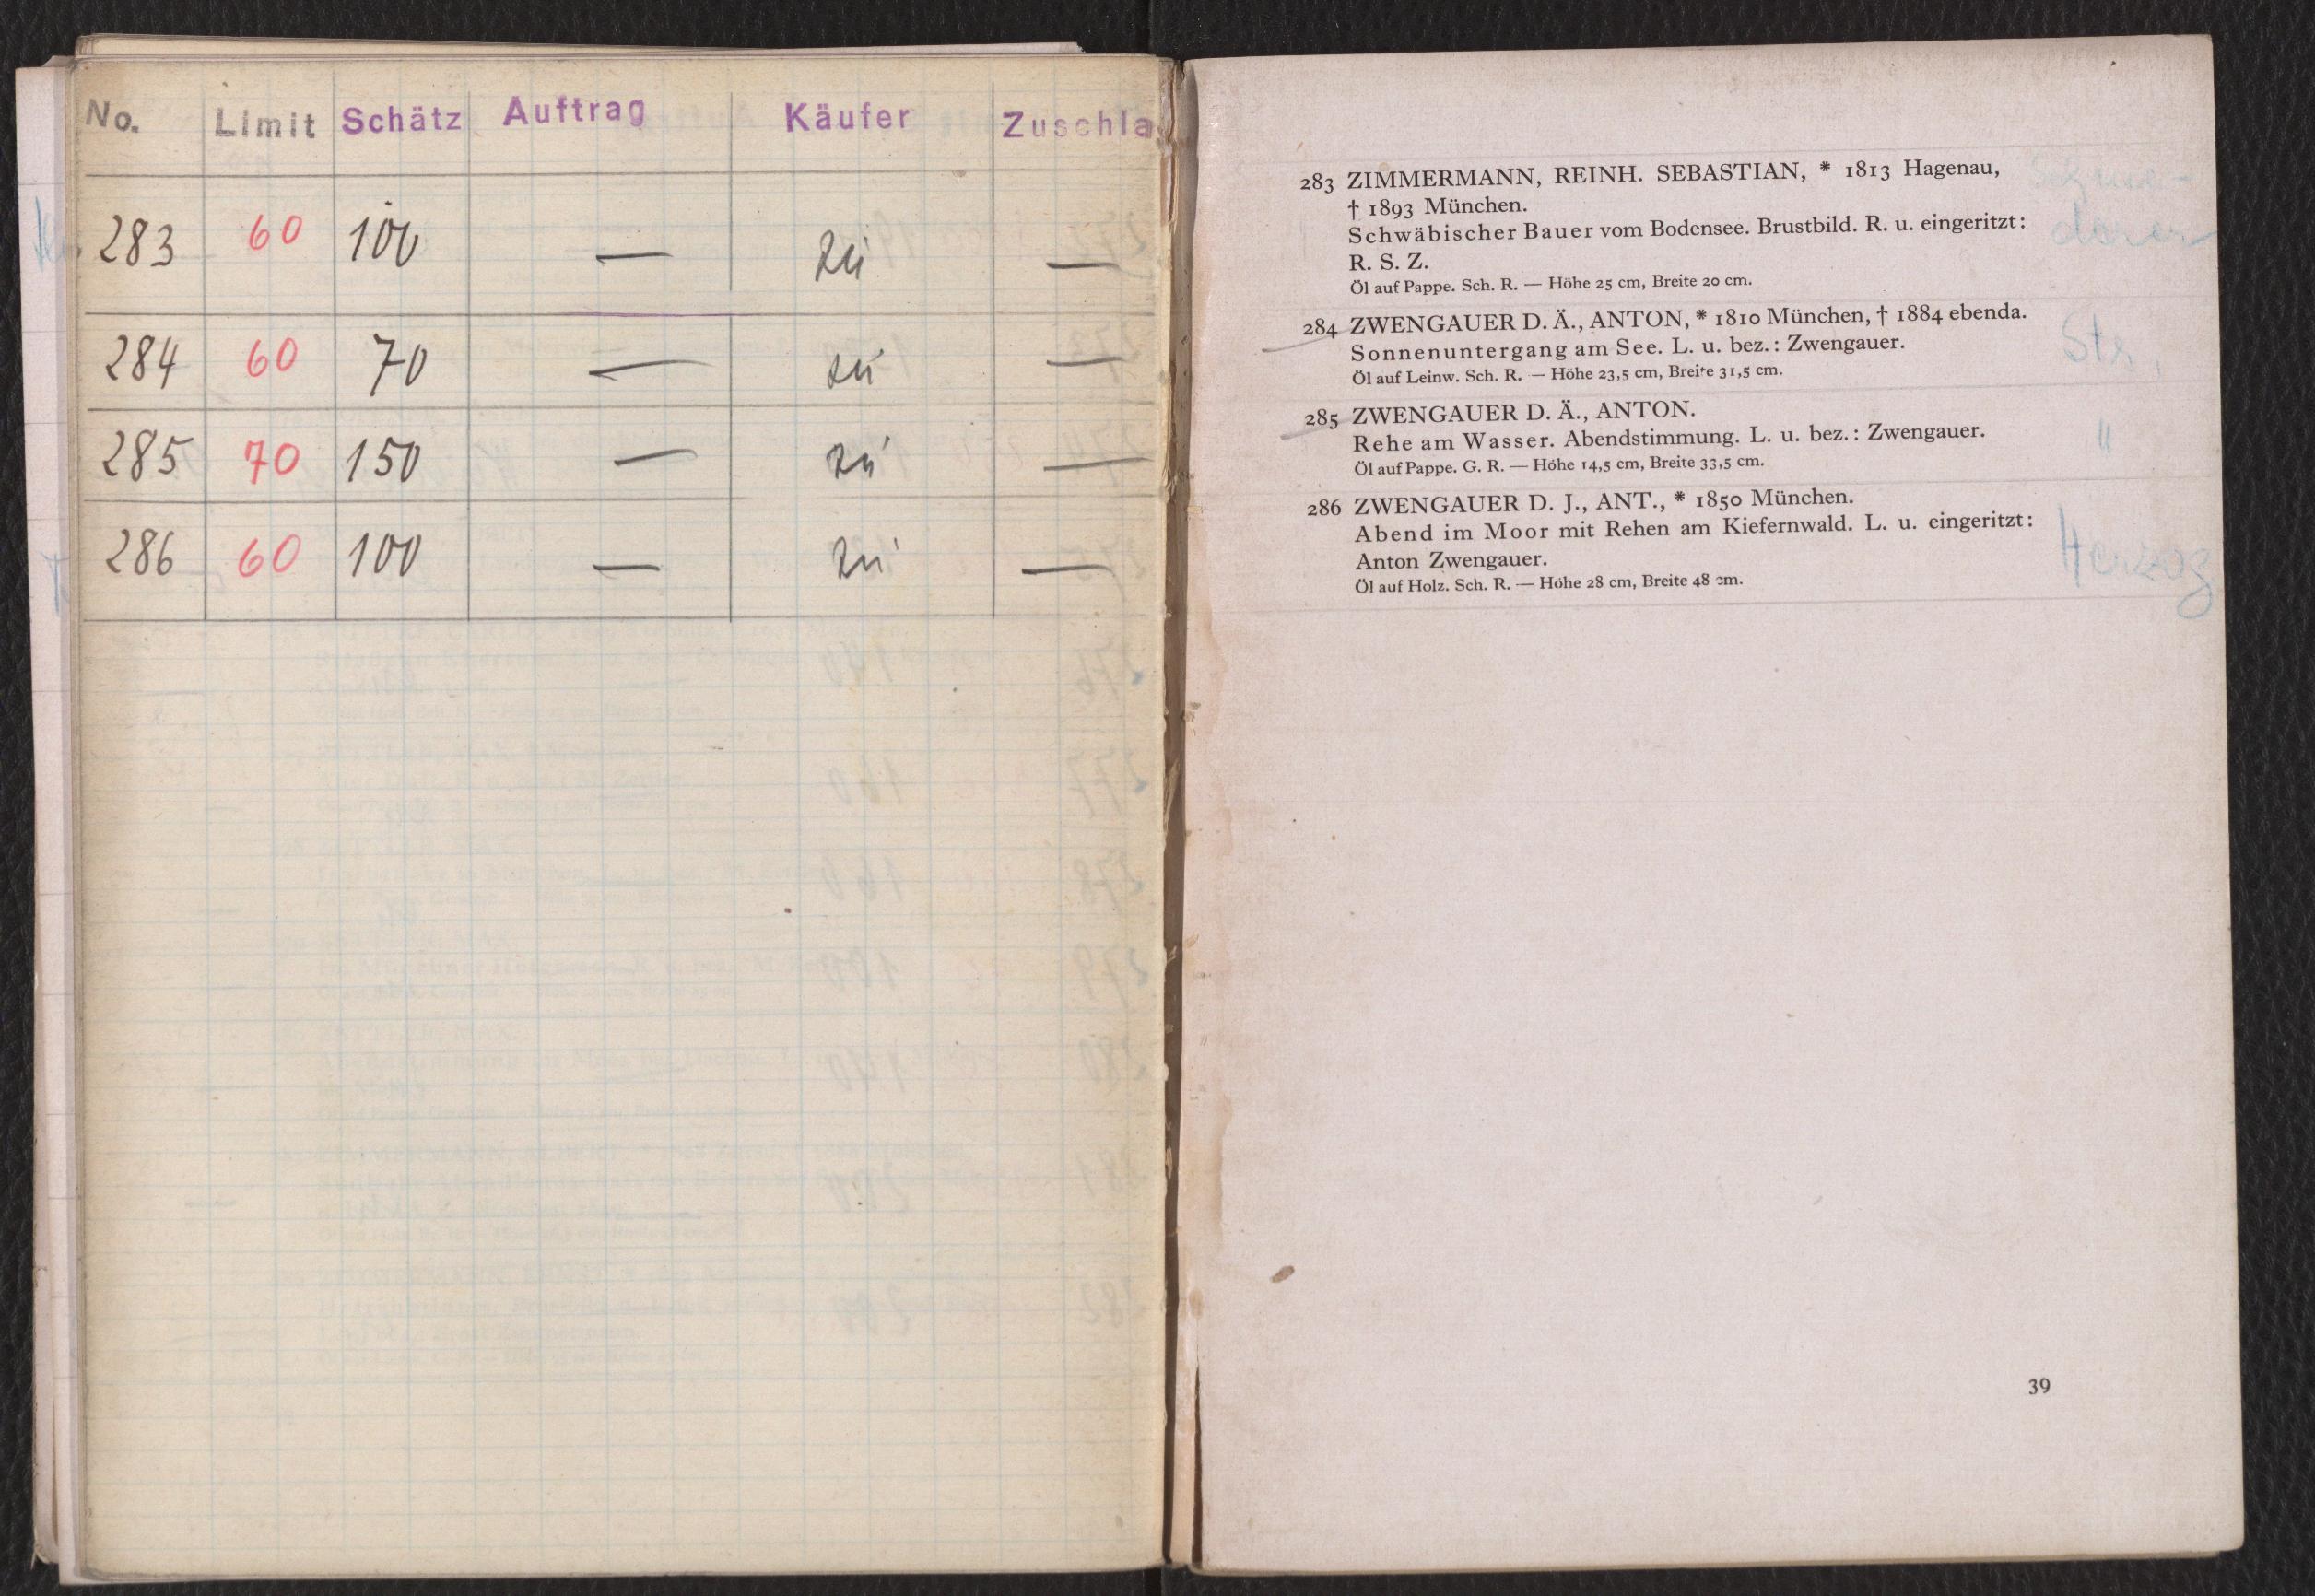 No. Limit Schätz Auftrag Käufer Zuschla
283 60 100 — zü —
284 60 70 — zü —
285 70 150 — zü —
286 60 100 — zü —
283 ZIMMERMANN, REINH. SEBASTIAN, * 1813 Hagenau,
† 1893 München.
Schwäbischer Bauer vom Bodensee. Brustbild. R. u. eingeritzt:
R. S. Z.
Öl auf Pappe. Sch. R. — Höhe 25 cm, Breite 20 cm.
284 ZWENGAUER D. Ä., ANTON, * 1810 München, † 1884 ebenda.
Sonnenuntergang am See. L. u. bez.: Zwengauer.
Str.
Öl auf Leinw. Sch. R. — Höhe 23,5 cm, Breite 31,5 cm.
285 ZWENGAUER D. Ä., ANTON.
Rehe am Wasser. Abendstimmung. L. u. bez.: Zwengauer.
"
Öl auf Pappe. G. R. — Höhe 14,5 cm, Breite 33,5 cm.
286 ZWENGAUER D. J., ANT., * 1850 München.
Abend im Moor mit Rehen am Kiefernwald. L. u. eingeritzt:
Anton Zwengauer.
Herzog
Öl auf Holz. Sch. R. — Höhe 28 cm, Breite 48 cm.
39